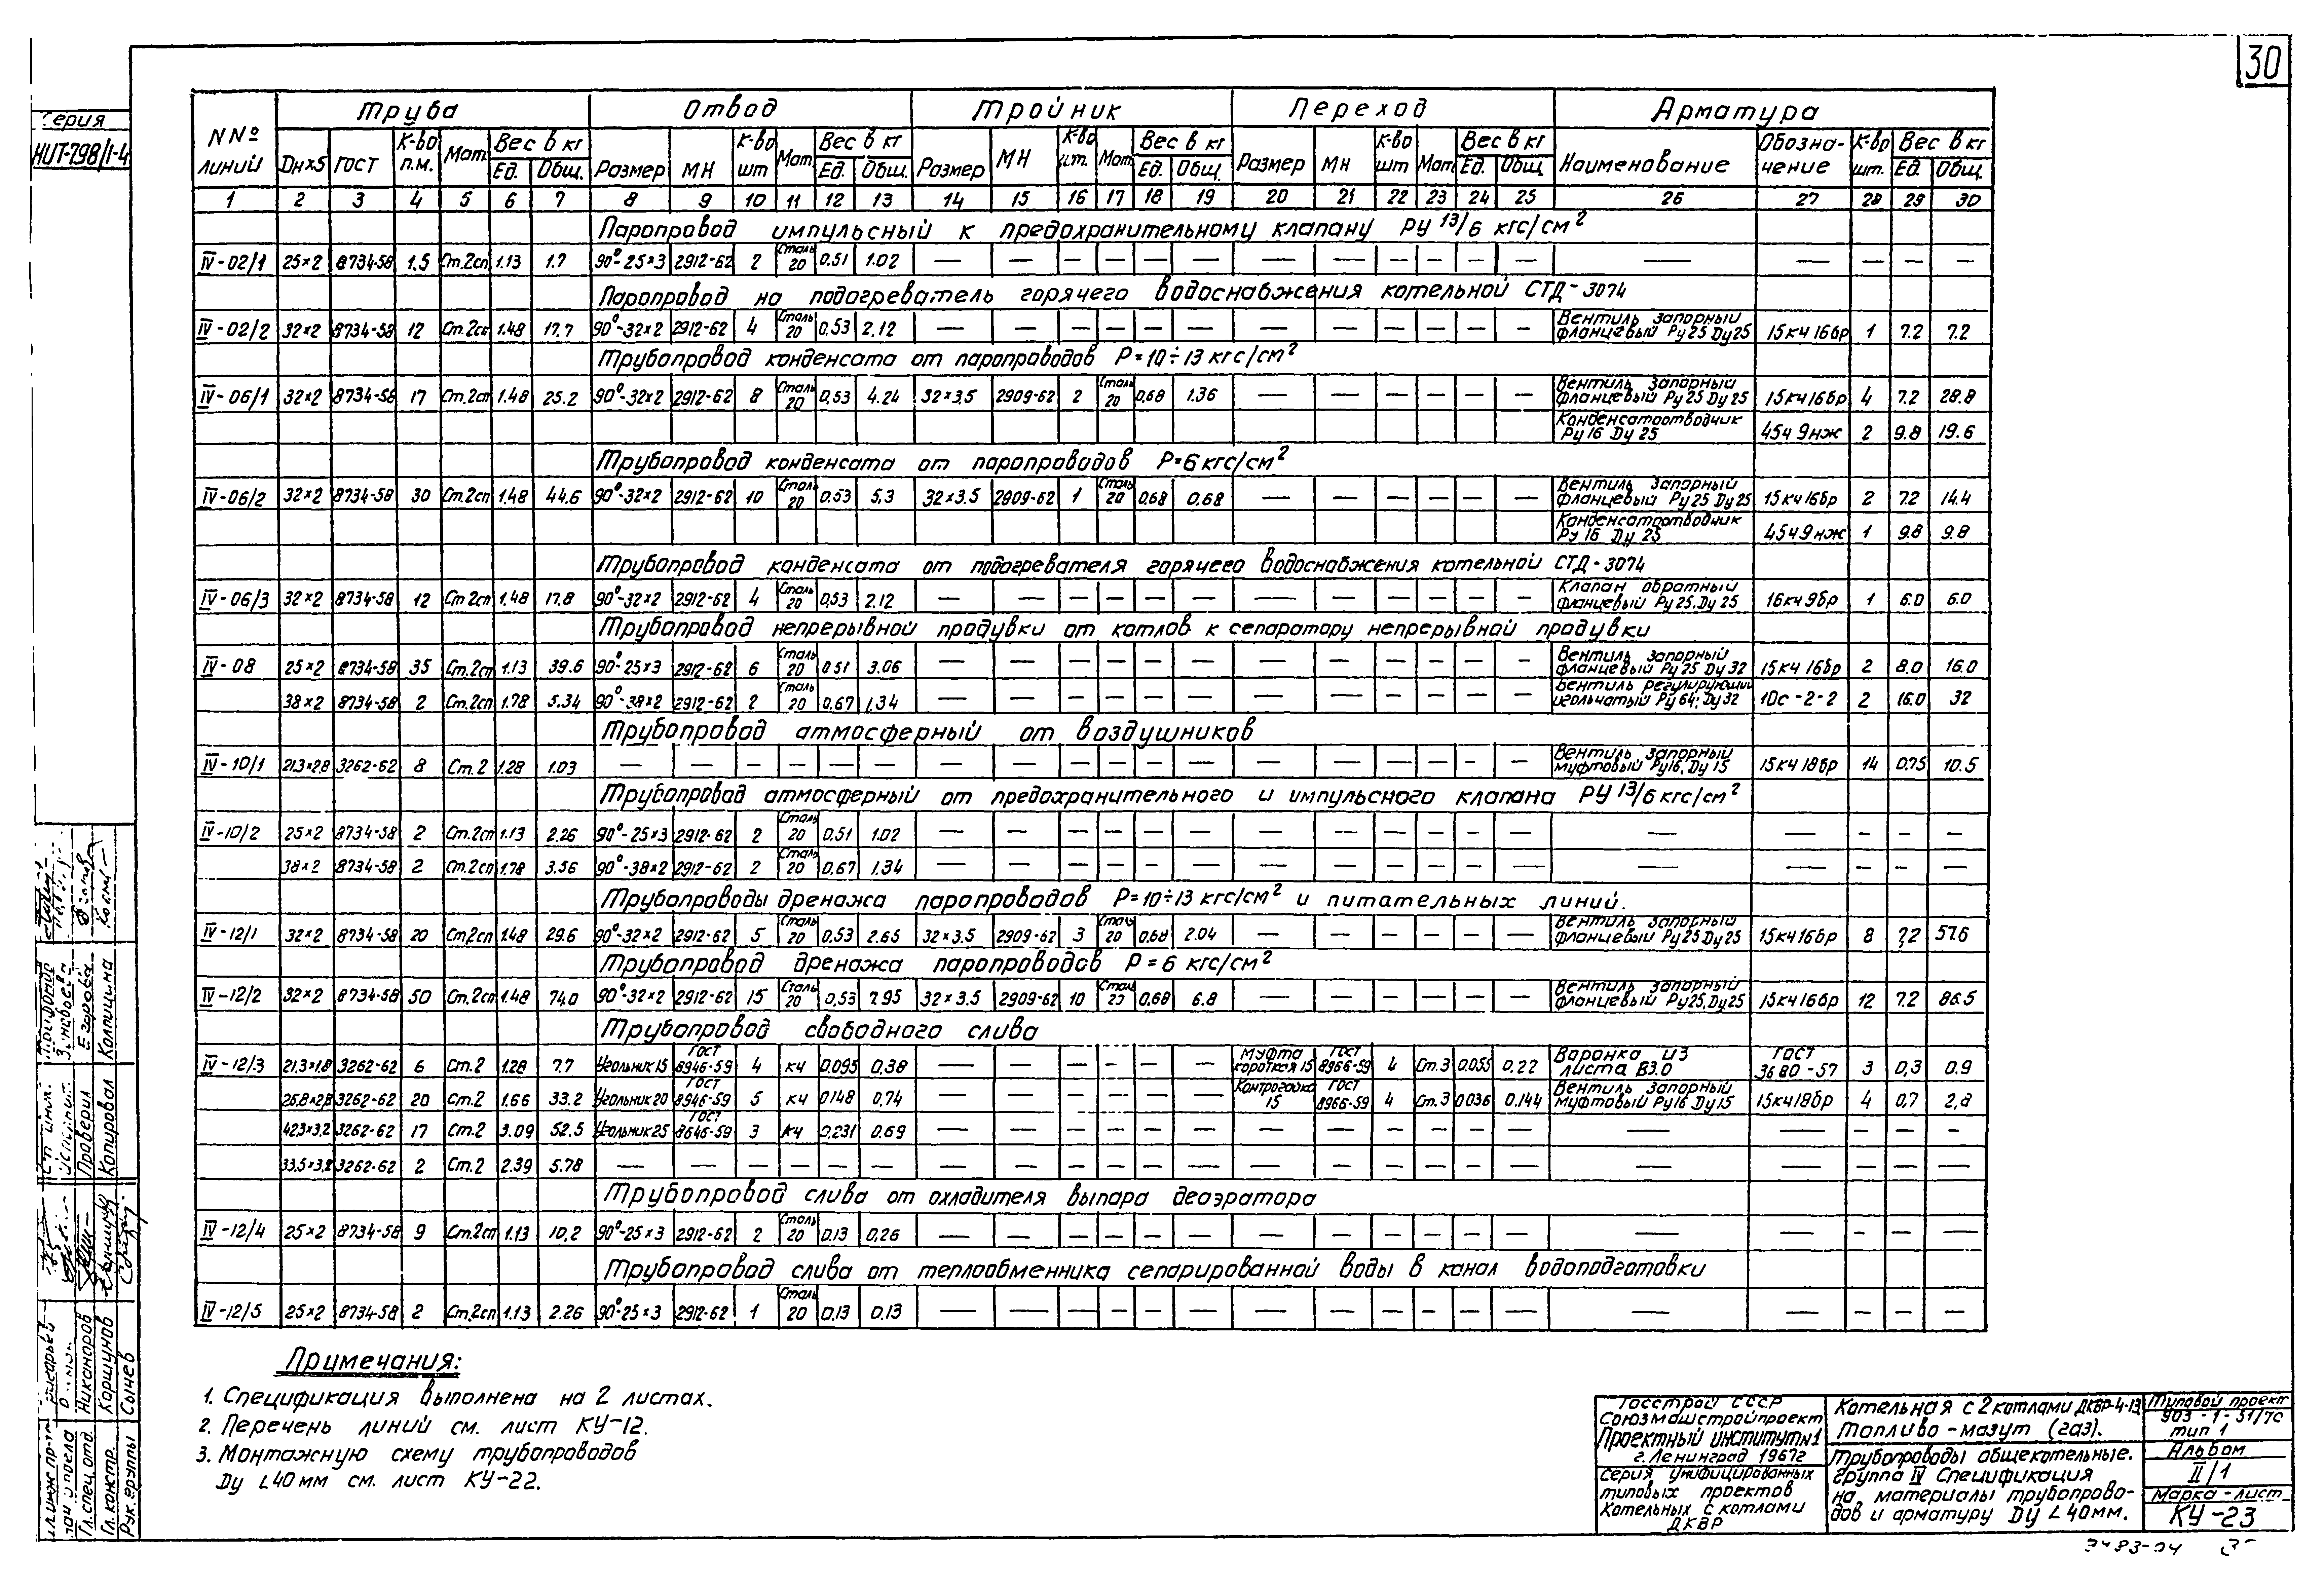 30
Серия
НИТ-798/1-4
NNº линий | Труба | Отвод | Тройник | Переход | Арматура
Dн×S | ГОСТ | К-во п.м. | Мат. | Вес в кг Ед. | Общ. | Размер | МН | К-во шт | Мат. | Вес в кг Ед. | Общ. | Размер | МН | К-во шт. | Мат | Вес в кг Ед. | Общ. | Размер | МН | К-во шт | Мат | Вес в кг Ед. | Общ | Наименование | Обозна-чение | К-во шт. | Вес в кг Ед. | Общ.
1 | 2 | 3 | 4 | 5 | 6 | 7 | 8 | 9 | 10 | 11 | 12 | 13 | 14 | 15 | 16 | 17 | 18 | 19 | 20 | 21 | 22 | 23 | 24 | 25 | 26 | 27 | 28 | 29 | 30
Паропровод импульсный к предохранительному клапану РУ 13/6 кгс/см²
IV-02/1 | 25×2 | 8734-58 | 1.5 | Ст.2сп | 1.13 | 1.7 | 90°-25×3 | 2912-62 | 2 | Сталь 20 | 0.51 | 1.02 | — | — | — | — | — | — | — | — | — | — | — | — | — | — | — | — | —
Паропровод на подогреватель горячего водоснабжения котельной СТД-3074
IV-02/2 | 32×2 | 8734-58 | 12 | Ст.2сп | 1.48 | 17.7 | 90°-32×2 | 2912-62 | 4 | Сталь 20 | 0.53 | 2.12 | — | — | — | — | — | — | — | — | — | — | — | — | Вентиль запорный фланцевый Ру25 Dу25 | 15кч16бр | 1 | 7.2 | 7.2
Трубопровод конденсата от паропроводов Р=10÷13 кгс/см²
IV-06/1 | 32×2 | 8734-58 | 17 | Ст.2сп | 1.48 | 25.2 | 90°-32×2 | 2912-62 | 8 | Сталь 20 | 0,53 | 4.24 | 32×3.5 | 2909-62 | 2 | Сталь 20 | 0,68 | 1.36 | — | — | — | — | — | — | Вентиль запорный фланцевый Ру25 Dу25 | 15кч16бр | 4 | 7.2 | 28.8
Конденсатоотводчик Ру16 Dу 25 | 45ч9нж | 2 | 9.8 | 19.6
Трубопровод конденсата от паропроводов Р=6 кгс/см²
IV-06/2 | 32×2 | 8734-58 | 30 | Ст.2сп | 1.48 | 44.6 | 90°-32×2 | 2912-62 | 10 | Сталь 20 | 0.53 | 5.3 | 32×3.5 | 2909-62 | 1 | Сталь 20 | 0.68 | 0.68 | — | — | — | — | — | — | Вентиль запорный фланцевый Ру25 Dу25 | 15кч16бр | 2 | 7.2 | 14.4
Конденсатоотводчик Ру 16 Dу 25 | 45ч9нж | 1 | 9.8 | 9.8
Трубопровод конденсата от подогревателя горячего водоснабжения котельной СТД-3074
IV-06/3 | 32×2 | 8734-58 | 12 | Ст2сп | 1.48 | 17.8 | 90°-32×2 | 2912-62 | 4 | Сталь 20 | 0,53 | 2.12 | — | — | — | — | — | — | — | — | — | — | — | — | Клапан обратный фланцевый Ру25.Dу25 | 16кч9бр | 1 | 6.0 | 6.0
Трубопровод непрерывной продувки от котлов к сепаратору непрерывной продувки
IV-08 | 25×2 | 8734-58 | 35 | Ст.2сп | 1.13 | 39.6 | 90°-25×3 | 2912-62 | 6 | Сталь 20 | 0.51 | 3.06 | — | — | — | — | — | — | — | — | — | — | — | — | Вентиль запорный фланцевый Ру25 Dу 32 | 15кч16бр | 2 | 8.0 | 16.0
38×2 | 8734-58 | 2 | Ст.2сп | 1.78 | 5.34 | 90°-38×2 | 2912-62 | 2 | Сталь 20 | 0,67 | 1.34 | — | — | — | — | — | — | — | — | — | — | — | — | Вентиль регулирующий игольчатый Ру64; Dу32 | 10с-2-2 | 2 | 16.0 | 32
Трубопровод атмосферный от воздушников
IV-10/1 | 21.3×2.8 | 3262-62 | 8 | Ст.2 | 1.28 | 1.03 | — | — | — | — | — | — | — | — | — | — | — | — | — | — | — | — | — | — | Вентиль запорный муфтовый Ру16, Dу 15 | 15кч18бр | 14 | 0.75 | 10.5
Трубопровод атмосферный от предохранительного и импульсного клапана РУ 13/6 кгс/см²
IV-10/2 | 25×2 | 8734-58 | 2 | Ст.2сп | 1.13 | 2.26 | 90°-25×3 | 2912-62 | 2 | Сталь 20 | 0,51 | 1.02 | — | — | — | — | — | — | — | — | — | — | — | — | — | — | — | — | —
38×2 | 8734-58 | 2 | Ст.2сп | 1.78 | 3.56 | 90°-38×2 | 2912-62 | 2 | Сталь 20 | 0,67 | 1.34 | — | — | — | — | — | — | — | — | — | — | — | — | — | — | — | — | —
Трубопроводы дренажа паропроводов Р=10÷13 кгс/см² и питательных линий.
IV-12/1 | 32×2 | 8734-58 | 20 | Ст.2сп | 1.48 | 29.6 | 90°-32×2 | 2912-62 | 5 | Сталь 20 | 0,53 | 2.65 | 32×3.5 | 2909-62 | 3 | Сталь 20 | 0,68 | 2.04 | — | — | — | — | — | — | Вентиль запорный фланцевый Ру25 Dу25 | 15кч16бр | 8 | 7.2 | 57.6
Трубопровод дренажа паропроводов Р=6 кгс/см²
IV-12/2 | 32×2 | 8734-58 | 50 | Ст.2сп | 1.48 | 74.0 | 90°-32×2 | 2912-62 | 15 | Сталь 20 | 0,53 | 7.95 | 32×3.5 | 2909-62 | 10 | Сталь 20 | 0,68 | 6.8 | — | — | — | — | — | — | Вентиль запорный фланцевый Ру25,Dу25 | 15кч16бр | 12 | 7.2 | 86.5
Трубопровод свободного слива
IV-12/3 | 21,3×1,8 | 3262-62 | 6 | Ст.2 | 1.28 | 7.7 | Угольник15 | ГОСТ 8946-59 | 4 | кч | 0,095 | 0,38 | — | — | — | — | — | — | Муфта короткая 15 | ГОСТ 8966-59 | 4 | Ст.3 | 0.055 | 0.22 | Воронка из листа В3.0 | ГОСТ 3680-57 | 3 | 0,3 | 0.9
26,8×2,8 | 3262-62 | 20 | Ст.2 | 1.66 | 33.2 | Угольник20 | ГОСТ 8946-59 | 5 | кч | 0,148 | 0,74 | — | — | — | — | — | — | Контргайка 15 | ГОСТ 8966-59 | 4 | Ст.3 | 0.036 | 0.144 | Вентиль запорный муфтовый Ру16 Dу15 | 15кч18бр | 4 | 0,7 | 2,8
42,3×3,2 | 3262-62 | 17 | Ст.2 | 3.09 | 52.5 | Угольник25 | ГОСТ 8646-59 | 3 | кч | 0,231 | 0.69 | — | — | — | — | — | — | — | — | — | — | — | — | — | — | — | — | —
33,5×3,2 | 3262-62 | 2 | Ст.2 | 2.39 | 5.78 | — | — | — | — | — | — | — | — | — | — | — | — | — | — | — | — | — | — | — | — | — | — | —
Трубопровод слива от охладителя выпара деаэратора
IV-12/4 | 25×2 | 8734-58 | 9 | Ст.2сп | 1.13 | 10,2 | 90°-25×3 | 2912-62 | 2 | Сталь 20 | 0.13 | 0,26 | — | — | — | — | — | — | — | — | — | — | — | — | — | — | — | — | —
Трубопровод слива от теплообменника сепарированной воды в канал водоподготовки
IV-12/5 | 25×2 | 8734-58 | 2 | Ст.2сп | 1.13 | 2.26 | 90°-25×3 | 2912-62 | 1 | Сталь 20 | 0.13 | 0.13 | — | — | — | — | — | — | — | — | — | — | — | — | — | — | — | — | —
Примечания:
1. Спецификация выполнена на 2 листах.
2. Перечень линий см. лист КУ-12.
3. Монтажную схему трубопроводов
Dу ∠40 мм см. лист КУ-22.
Госстрой СССР
Союзмашстройпроект
Проектный институт N1
г. Ленинград 1967г
Серия унифицированных
типовых проектов
Котельных с котлами
ДКВР
Котельная с 2 котлами ДКВР-4-13
Топливо-мазут (газ).
Трубопроводы общекотельные.
Группа IV Спецификация
на материалы трубопрово-
дов и арматуру Dу ∠40мм.
Типовой проект
903-1-51/70
тип 1
Альбом
II/1
Марка-лист
КУ-23
Егорова
Колпицина
Проверил
Копировал
Никаноров
Коршунов
Сычев
Гл.спец.отд.
Гл.констр.
Рук.группы